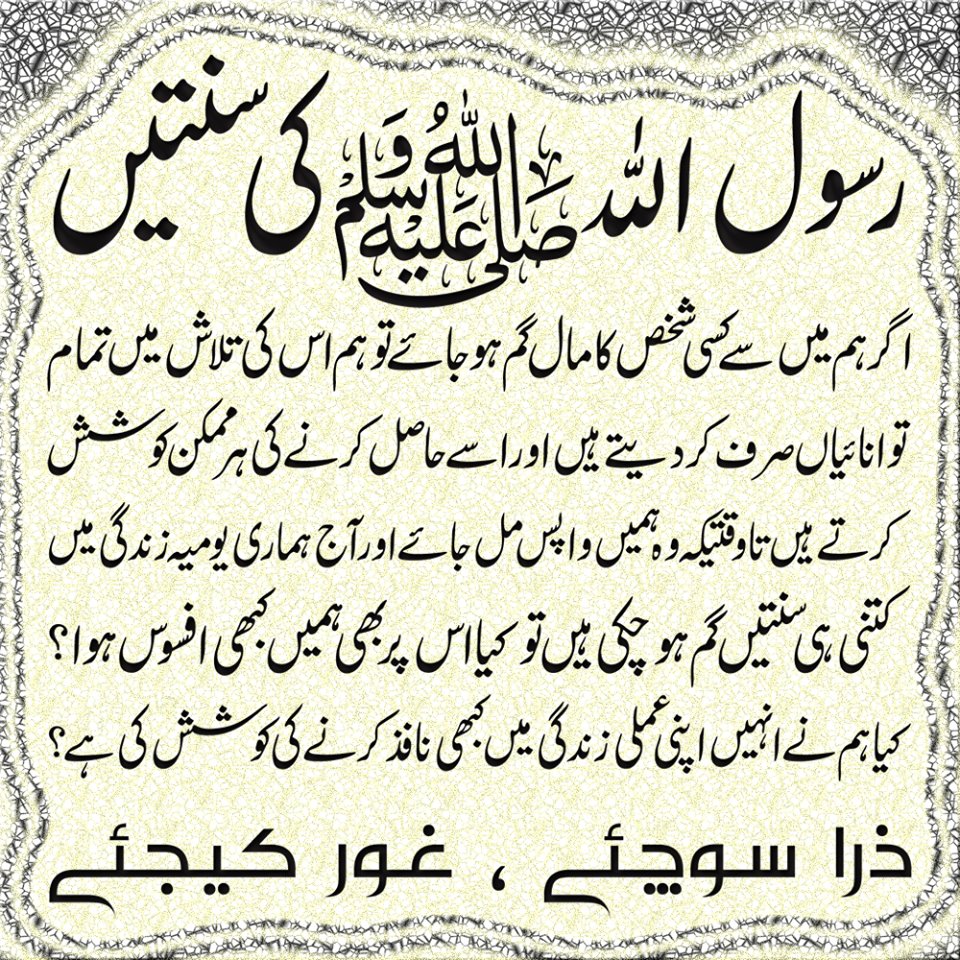 رسول اللہ صَلَّى اللهُ عَلَيْهِ وَسَلَّم کی سنتیں
اگر ہم میں سے کسی شخص کا مال گم ہو جائے تو ہم اس کی تلاش میں تمام
توانائیاں صرف کر دیتے ہیں اور اسے حاصل کرنے کی ہر ممکن کوشش
کرتے ہیں تاوقتیکہ وہ ہمیں واپس مل جائے اور آج ہماری یومیہ زندگی میں
کتنی ہی سنتیں گم ہو چکی ہیں تو کیا اس پر بھی ہمیں کبھی افسوس ہوا؟
کیا ہم نے انہیں اپنی عملی زندگی میں کبھی نافذ کرنے کی کوشش کی ہے؟
ذرا سوچئے ، غور کیجئے